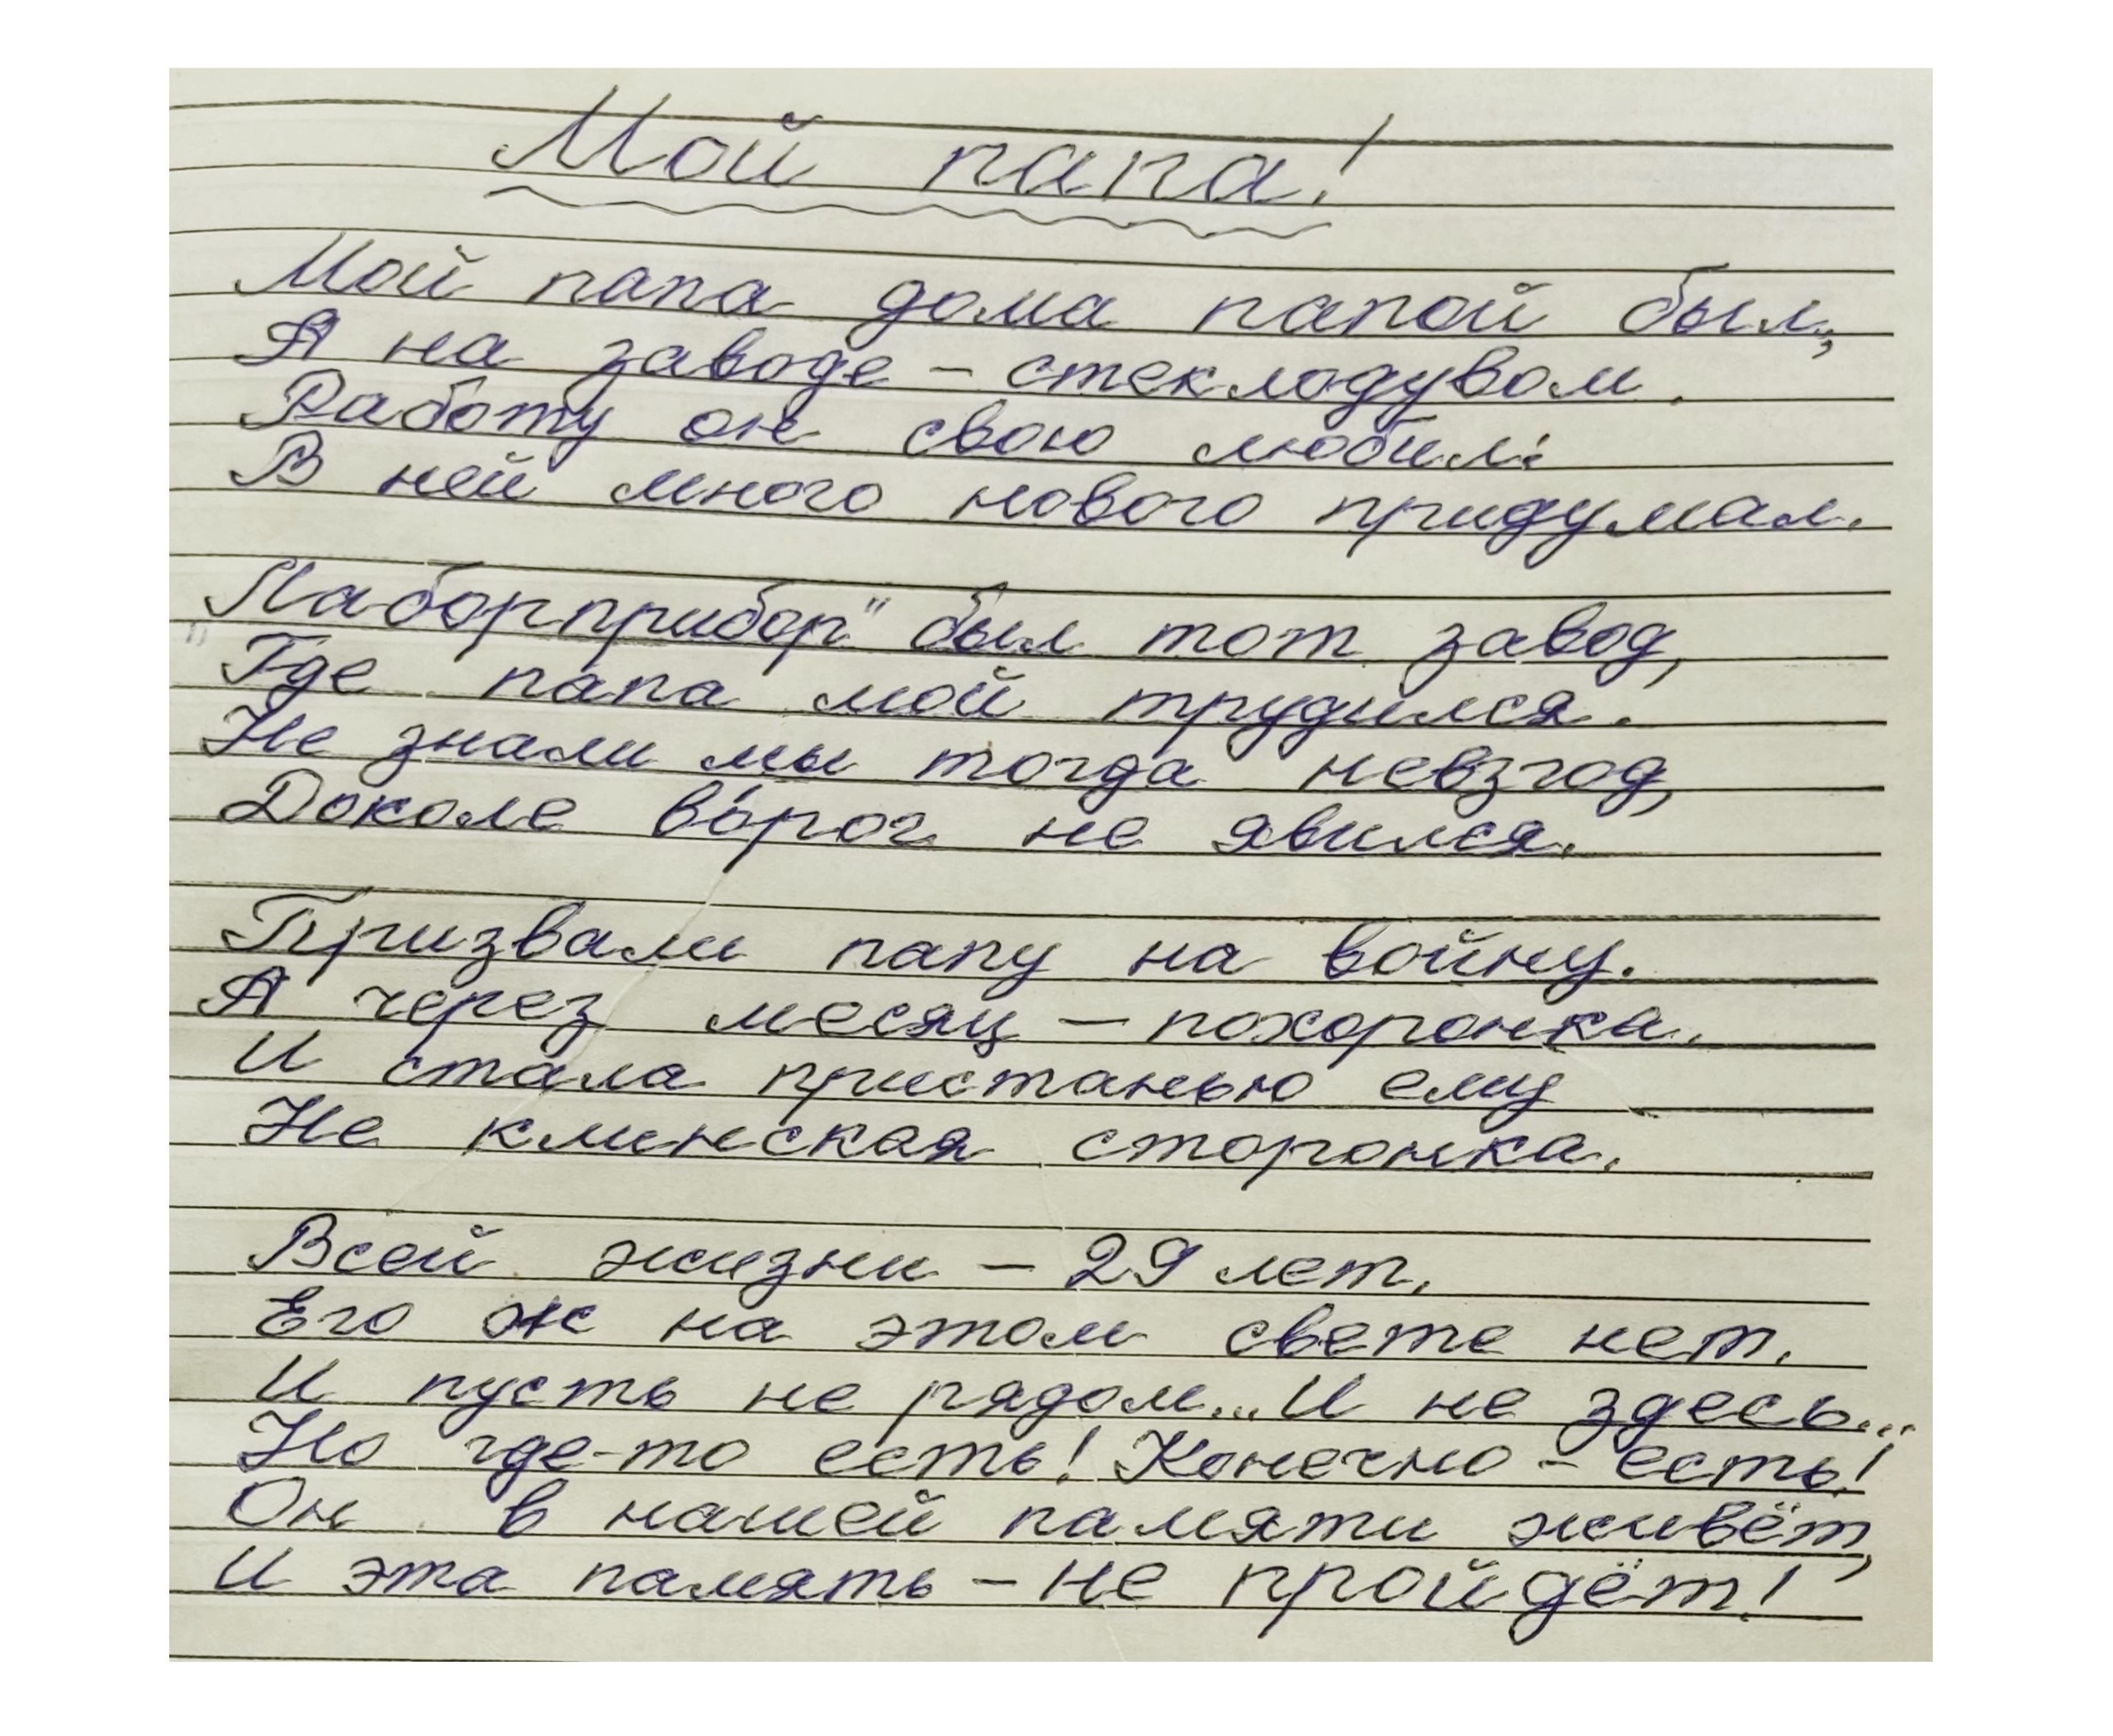 Мой папа!
Мой папа дома папой был,
А на заводе – стеклодувом.
Работу он свою любил:
В ней много нового придумал.
„Лаборприбор" был тот завод,
Где папа мой трудился.
Не знали мы тогда невзгод,
Доколе во́рог не явился.
Призвали папу на войну.
А через месяц – похоронка.
И стала пристанью ему
Не клинская сторонка.
Всей жизни – 29 лет.
Его ж на этом свете нет.
И пусть не рядом... И не здесь...
Но где-то есть! Конечно – есть!
Он в нашей памяти живёт,
И эта память – не пройдёт!